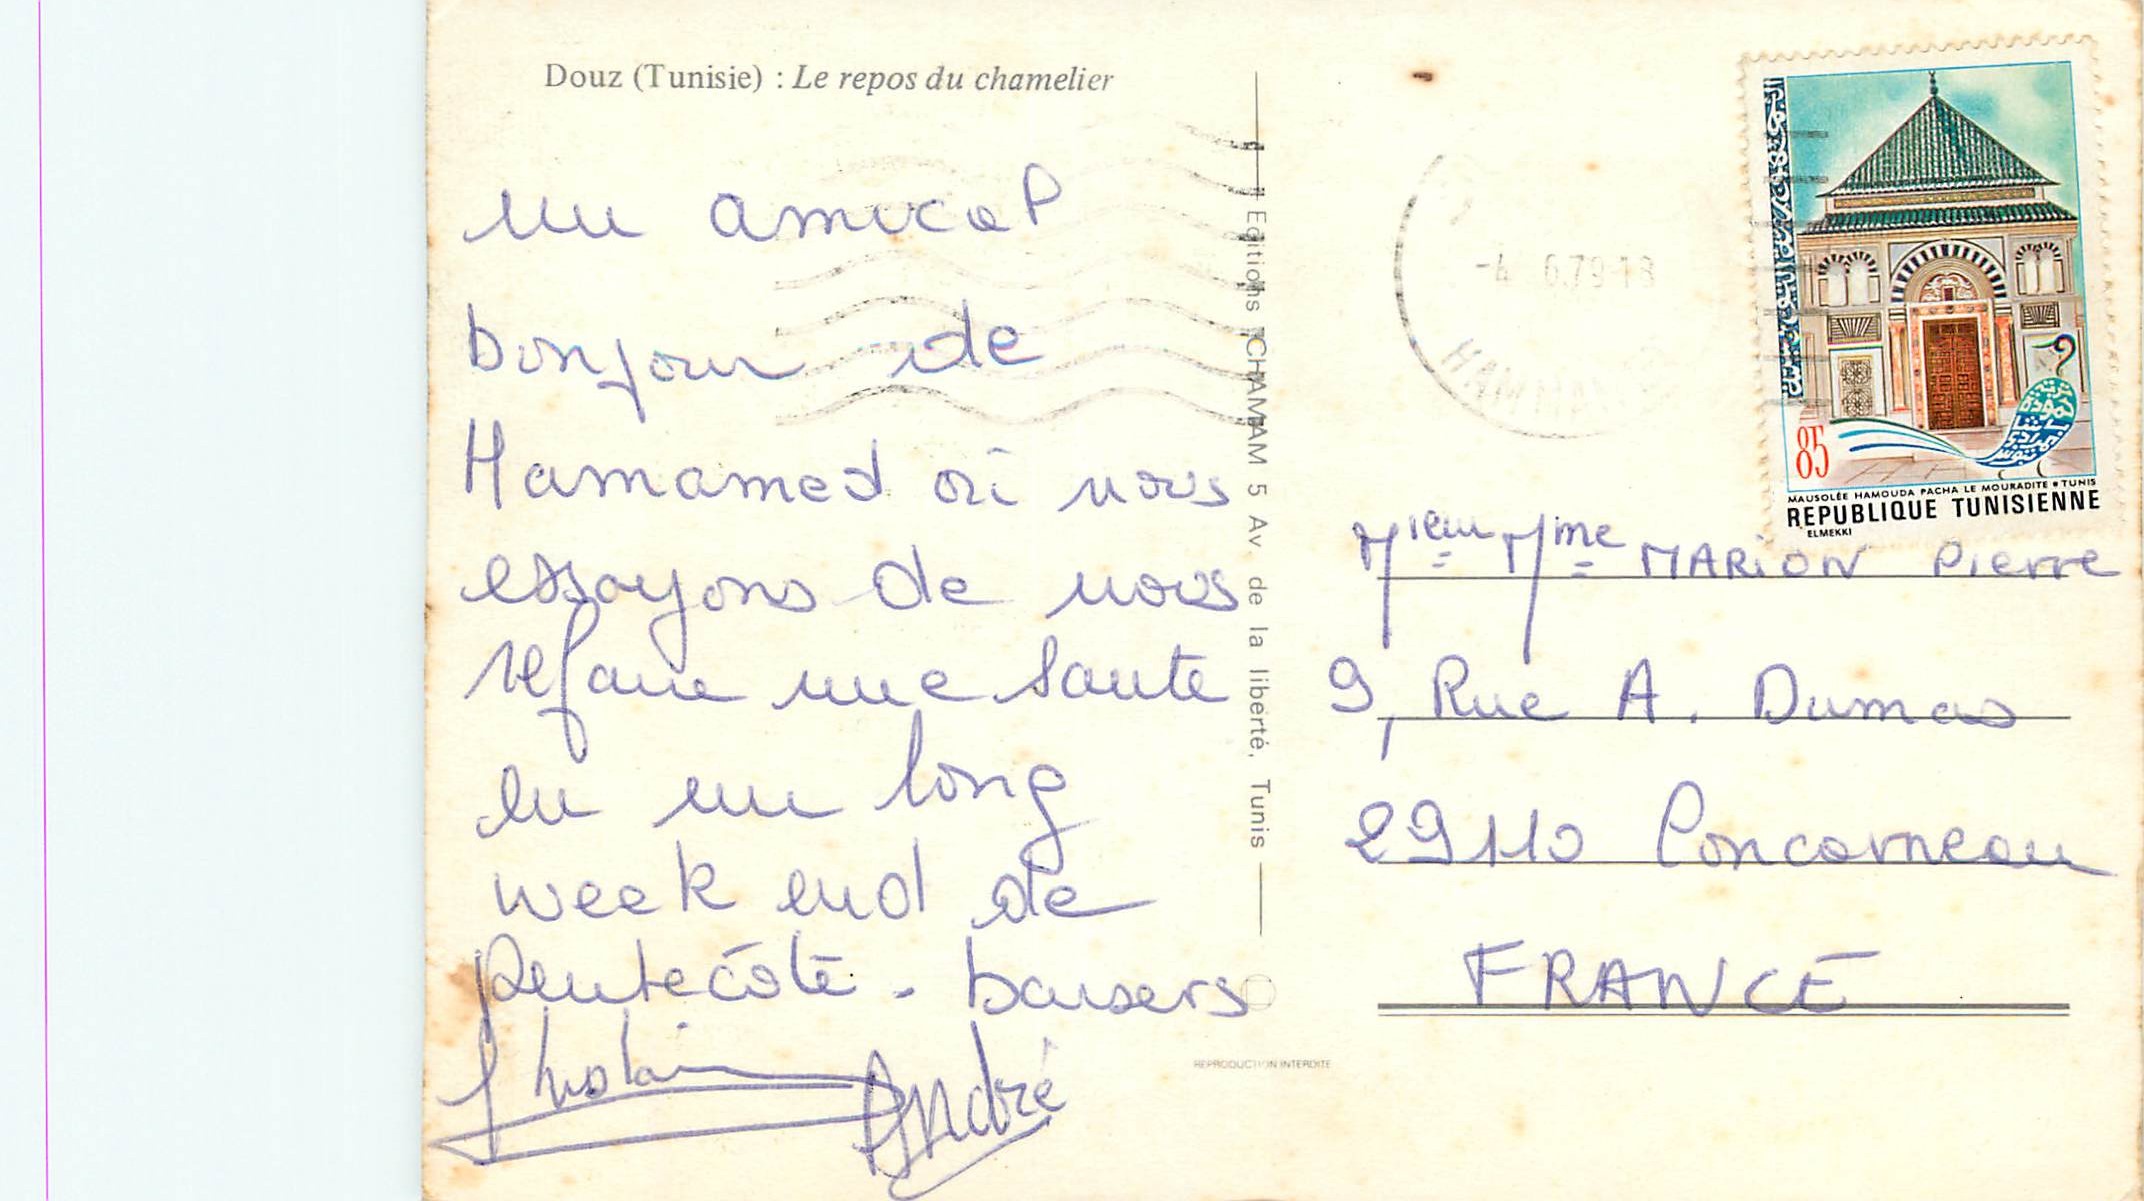 Douz (Tunisie) : Le repos du chamelier
un amical
bonjour de
Hamamed où nous
essayons de nous
refaire une santé
en un long
week end de
Pentecôte. baisers
Ghislain
André
Editions CHAMAM 5 Av. de la liberté, Tunis
REPRODUCTION INTERDITE
-4 6.79-18
HAMMAM
85
MAUSOLÉE HAMOUDA PACHA LE MOURADITE • TUNIS
REPUBLIQUE TUNISIENNE
ELMEKKI
Mieur Mme MARION Pierre
9, Rue A. Dumas
29110 Concarneau
FRANCE